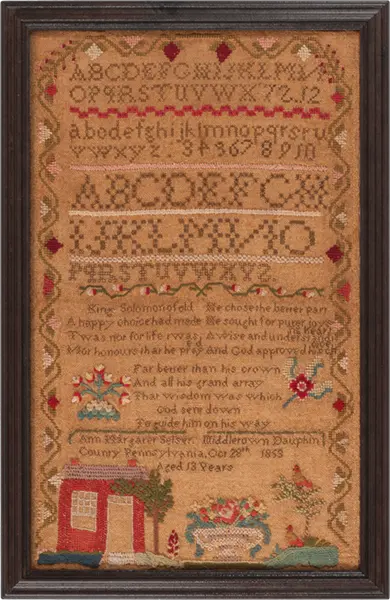 ABCDEFGHIJKLMN
OPQRSTUVWX YZ 12
abcdefghijklmnopqrstu
vwxyz 3 4 3 6 7 8 9 10
ABCDEFGH
IJKLMNO
PQRSTUVWXYZ
King Solomon of old He chose the better part
A happy choice had made He sought for
Twas not for life twas A wise and understanding heart
Nor honours that he prayed And God approved his
Far better than his crown
And all his grand array
That wisdom was which
God sent down
To guide him on his way
Ann Margaret Selser Middletown Dauphin
County Pennsylvania, Oct 28th 1853
Aged 13 Years